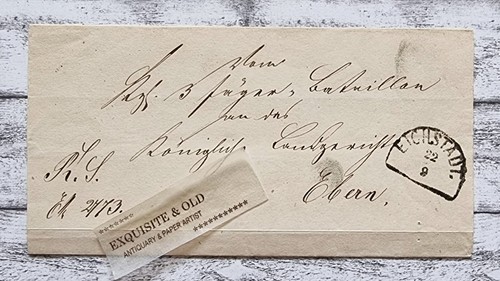 Vom
Kgl. 3 Jäger-Bataillon
an das
Königliche Landgericht
R. S.
Ebern.
EICHSTÄDT
22
9
EXQUISITE & OLD
ANTIQUARY & PAPER ARTIST